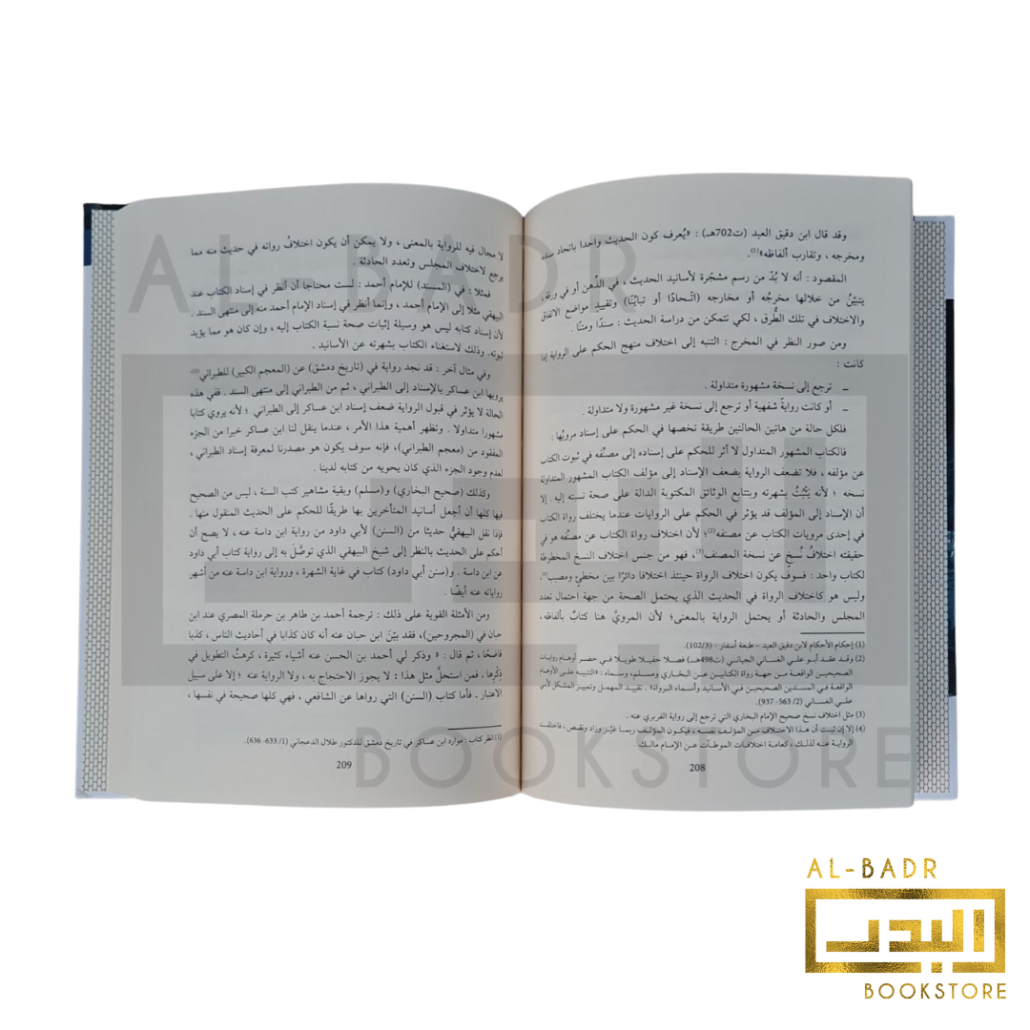 وقد قال ابن دقيق العيد (ت702هـ) : «يُعرف كون الحديث واحدا باتحاد سنده
ومخرجه ، وتقارب ألفاظه»(1).
المقصود : أنه لا بُدّ من رسم مشجّرة لأسانيد الحديث ، في الذِّهن أو في ورقة ،
يتبيّنُ من خلالها مخرجُه أو مخارجه (اتّحادًا أو تباينًا) وتقييدِ مواضع الاتفاق
والاختلاف في تلك الطُّرق ، لكي نتمكن من دراسة الحديث : سندًا ومتنًا .
ومن صور النظر في المخرج : التنبه إلى اختلاف منهج الحكم على الرواية إذا
كانت :
ــ ترجع إلى نسخة مشهورة متداولة .
ــ أو كانت روايةً شفهية أو ترجع إلى نسخة غير مشهورة ولا متداولة .
فلكل حالة من هاتين الحالتين طريقة تخصها في الحكم على إسناد مرويّها :
فالكتاب المشهور المتداول لا أثر للحكم على إسناده إلى مصنّفه في ثبوت الكتاب
عن مؤلفه ، فلا تضعف الرواية بضعف الإسناد إلى مؤلف الكتاب المشهور المتداولة
نسخه ؛ لأنه يَثْبُتُ بشهرته وبتتابع الوثائق المكتوبة الدالة على صحة نسبته إليه . إلا
أن الإسناد إلى المؤلف قد يؤثر في الحكم على الروايات عندما يختلف رواة الكتاب
في إحدى مرويات الكتاب عن مصنفه(2)؛ لأن اختلاف رواة الكتاب عن مصنّفه هو في
حقيقته اختلافُ نُسخٍ عن نسخة المصنف(3)، فهو من جنس اختلاف النسخ المخطوطة
لكتاب واحد : فسوف يكون اختلاف الرواة حينئذ اختلافا دائرًا بين مخطئٍ ومصيب(4)،
وليس هو كاختلاف الرواة في الحديث الذي يحتمل الصحة من جهة احتمال تعدد
المجلس والحادثة أو يحتمل الرواية بالمعنى؛ لأن المرويَّ هنا كتابٌ بألفاظه،
(1) إحكام الأحكام لابن دقيق العيد – طبعة أسفار – (102/3).
(2) وقد عقد أبو علي الغساني الجياني (ت498هـ) فصلا حفيلا طويلا في حصر أوهام روايات
الصحيحين الواقعة من جهة رواة الكتابين عن البخاري ومسلم، وسماه : «التنبيه على الأوهام
الواقعة في المسندين الصحيحين في الأسانيد وأسماء الرواة» . تقييد المهمل وتمييز المشكل لأبي
علي الغساني (2/ 563- 937).
(3) مثل اختلاف نسخ صحيح الإمام البخاري التي ترجع إلى رواية الفربري عنه .
(4) إلا إن ثبت أن هذا الاختلاف من المؤلف نفسه ، فيكون المؤلف ربما غيّر وزاد ونقص، فاختلفت
الرواية عنه لذلك، كعامة اختلافات الموطآت عن الإمام مالك .
208
لا مجال فيه للرواية بالمعنى ، ولا يمكن أن يكون اختلافُ رواته في حديث منه مما
رجع لاختلاف المجلس وتعدد الحادثة .
فمثلا : في (المسند) للإمام أحمد : لست محتاجا أن أنظر في إسناد الكتاب عند
البيهقي مثلا إلى الإمام أحمد ، وإنما أنظر في إسناد الإمام أحمد منه إلى منتهى السند .
لأن إسناد كتابه ليس هو وسيلة إثبات صحة نسبة الكتاب إليه ، وإن كان هو مما يؤيد
ثبوته. وذلك لاستغناء الكتاب بشهرته عن الأسانيد .
وفي مثال آخر : قد نجد رواية في (تاريخ دمشق) عن (المعجم الكبير) للطبراني(1)
يرويها ابن عساكر بالإسناد إلى الطبراني ، ثم من الطبراني إلى منتهى السند . ففي هذه
الحالة لا يؤثر في قبول الرواية ضعف إسناد ابن عساكر إلى الطبراني ؛ لأنه يروي كتابا
مشهورا متداولا . وتظهر أهمية هذا الأمر ، عندما ينقل لنا ابن عساكر خبرا من الجزء
المفقود من (معجم الطبراني)، فإنه سوف يكون هو مصدرنا لمعرفة إسناد الطبراني ،
لعدم وجود الجزء الذي كان يحويه من كتابه لدينا .
وكذلك (صحيح البخاري) و(مسلم) وبقية مشاهير كتب السنة ، ليس من الصحيح
فيها كلها أن أجعل أسانيد المتأخرين بها طريقًا للحكم على الحديث المنقول منها .
فإذا نقل البيهقيُّ حديثا من (السنن) لأبي داود من رواية ابن داسة عنه ، لا يصح أن
أحكم على الحديث بالنظر إلى شيخ البيهقي الذي توصَّل به إلى رواية كتاب أبي داود
عن ابن داسة . و(سنن أبي داود) كتاب في غاية الشهرة ، ورواية ابن داسة عنه من أشهر
رواياته عنه أيضًا .
ومن الأمثلة القوية على ذلك : ترجمة أحمد بن طاهر بن حرملة المصري عند ابن
حبان في (المجروحين)، فقد بيّنَ ابن حبان عنه أنه كان كذابا في أحاديث الناس ، كذبا
فاضحًا ، ثم قال : « وذكر لي أحمد بن الحسن عنه أشياء كثيرة ، كرهتُ التطويل في
ذِكْرِها . فمن استحلَّ مثل هذا : لا يجوز الاحتجاج به ، ولا الرواية عنه ؛ إلا على سبيل
الاعتبار . فأما كتاب (السنن) التي رواها عن الشافعي ، فهي كلها صحيحة في نفسها ،
(1) انظر كتاب : موارد ابن عساكر في تاريخ دمشق للدكتور طلال الدعجاني (1/ 633- 636).
209
AL-BADR
BOOKSTORE
AL-BADR
البدر
BOOKSTORE